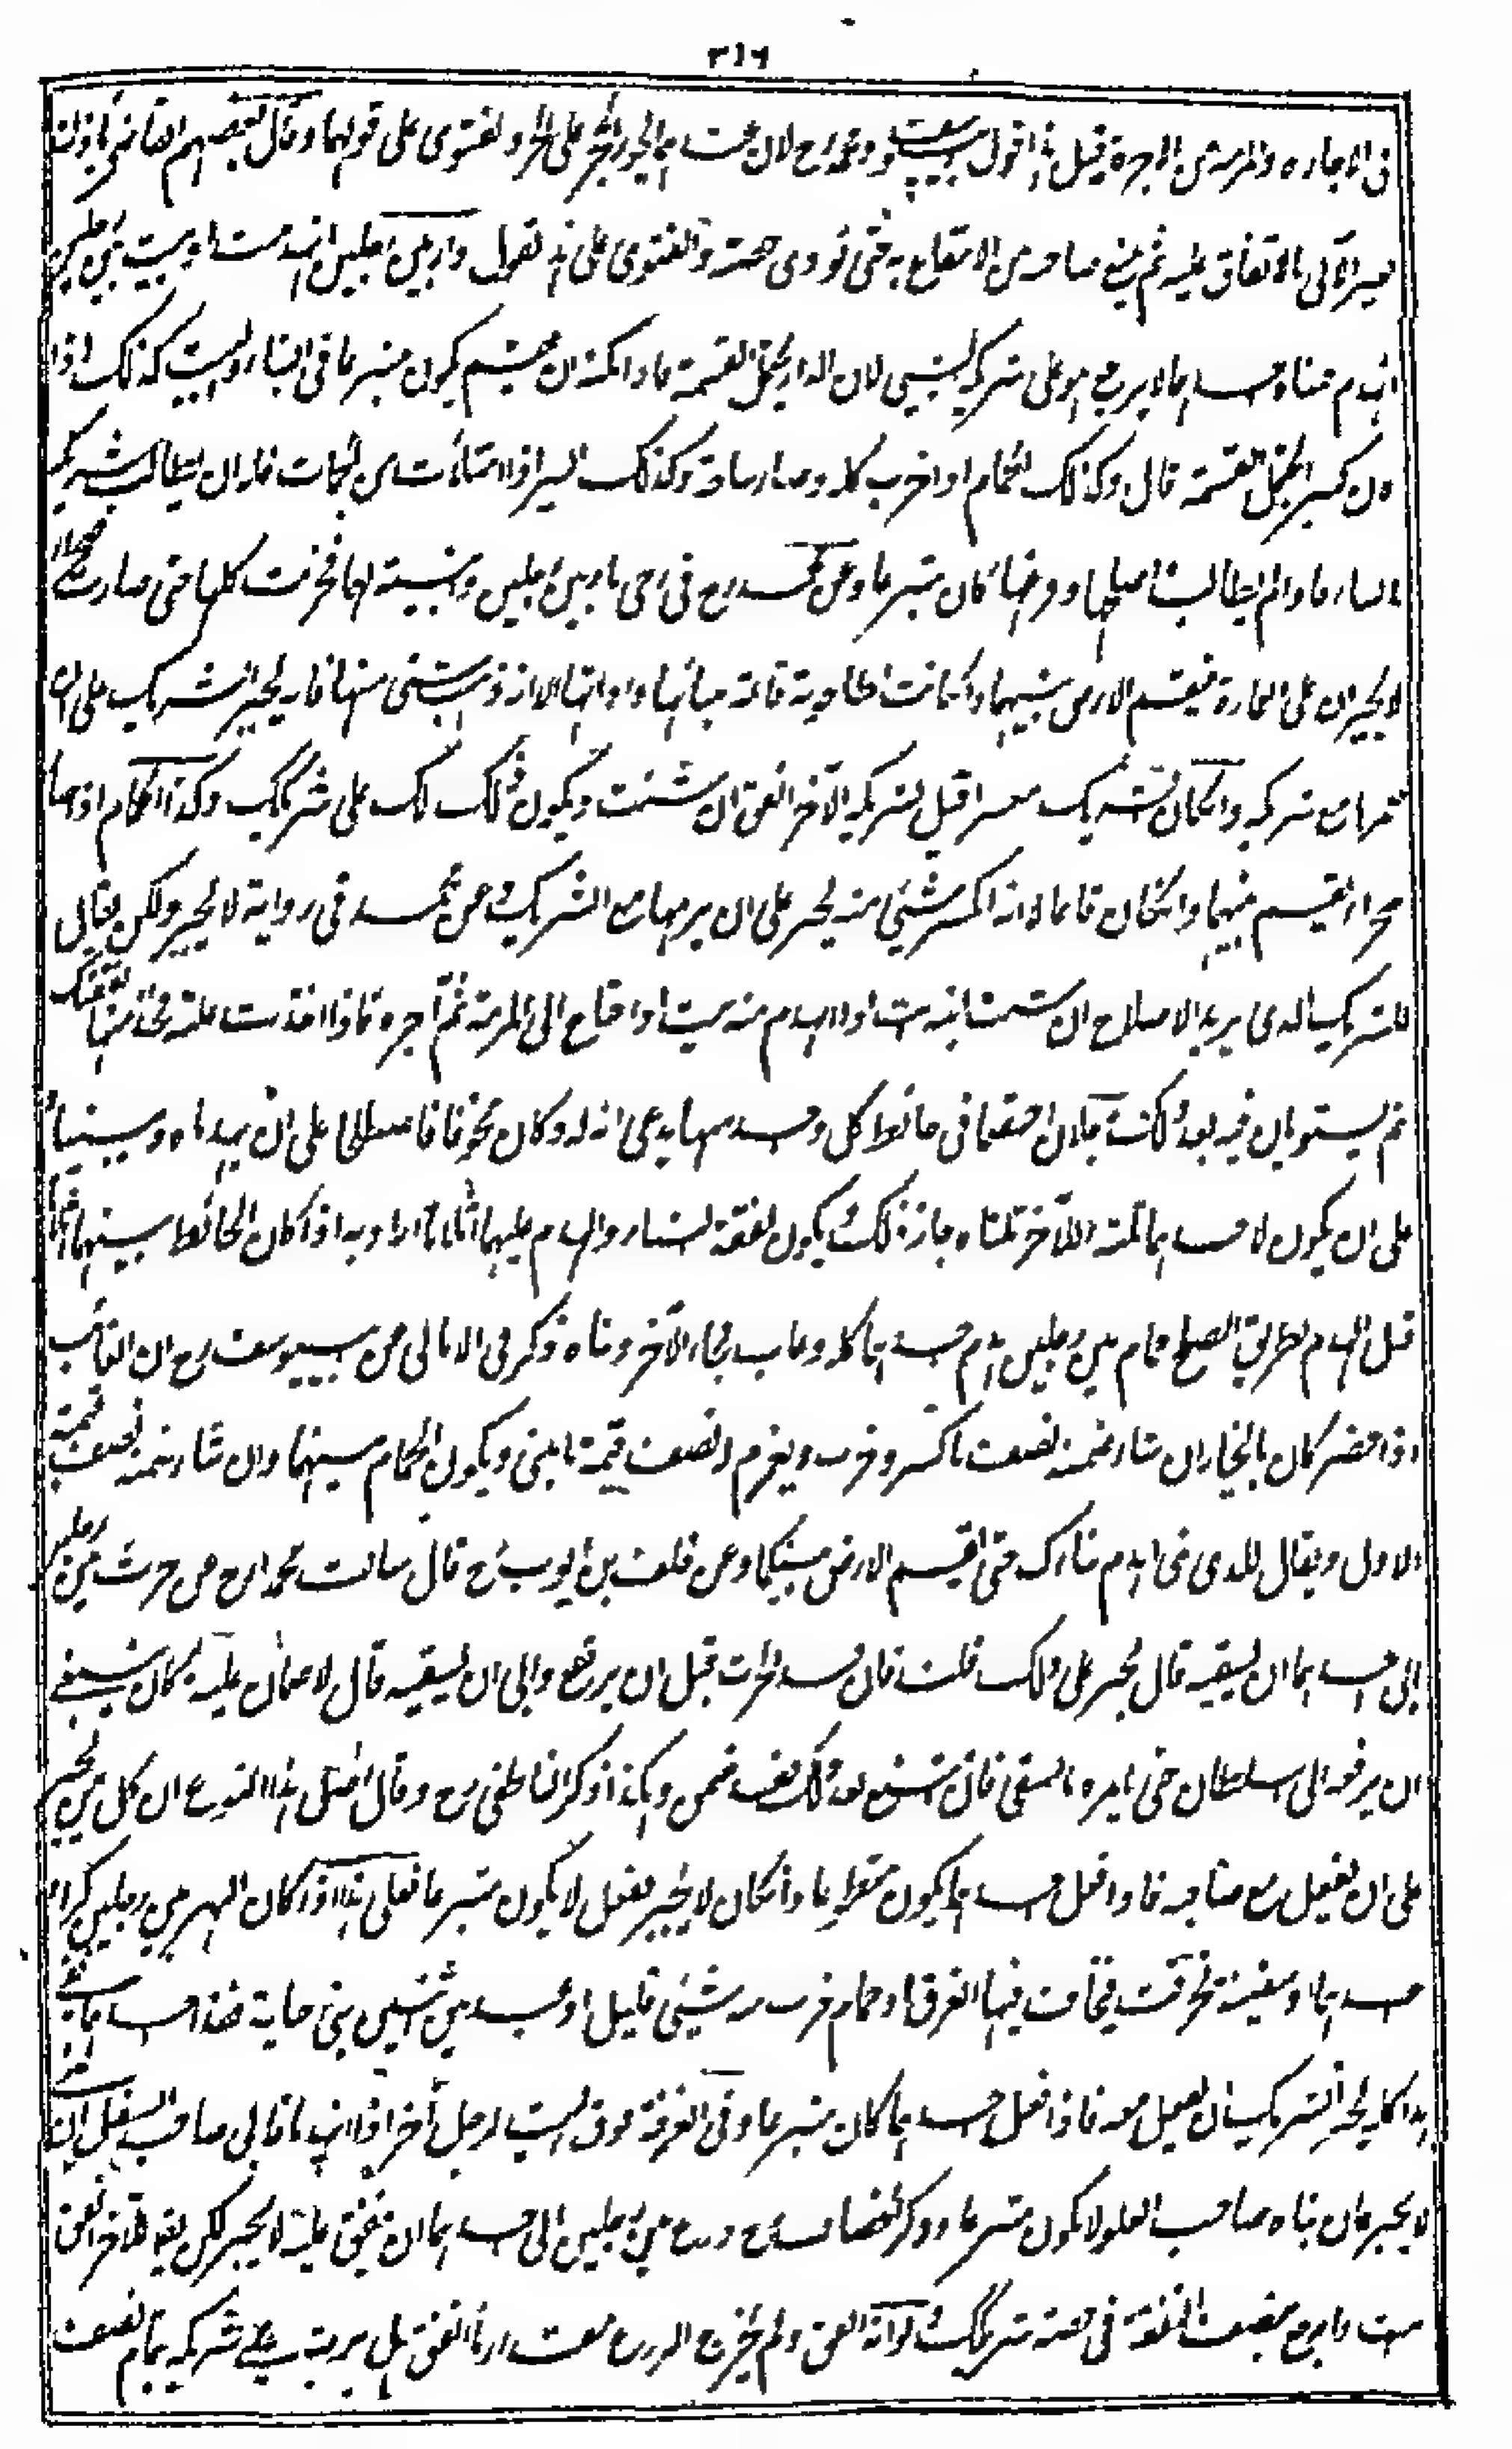 ٣١٦
فى الاجارة والمرمة من الاجرة قيل هذا قول ابى يوسف ومحمد رح لان عندهما يجوز الحجر على الحر والفتوى على قولهما وقال بعضهم القاضى يأذن
لغير الآبى بالانفاق عليه ثم يمنع صاحبه من الانتفاع به حتى يؤدى حصته والفتوى على هذا القول دار بين رجلين انهدمت او بيت بين رجلين
انهدم فبناه احدهما لا يرجع هو على شريكه بشيء لان الدار يحتمل القسمة فاذا امكنه ان يقسم يكون متبرعا فى البناء والبيت كذلك اذا
كان كبيرا يحتمل القسمة قال وكذلك الحمام اذا خرب كله وصار ساحة وكذلك البير اذا امتلأت من الحمأت فله ان يطالب شريكه
بالبناء فاذا لم يطالبه واصلحها وفرغها كان متبرعا وعن محمد رح فى رحى ماء بين رجلين وبنيته لها فخربت كلها حتى صارت صحراء
لا يجبران على العمارة فيقسم الارض بينهما وان كانت الطاحونة قائمة ببنائها وادواتها الا انه ذهب شئ منها فانه يجبر الشريك على ان
يعمر مع شريكه وان كان الشريك معسرا قيل لشريكه الآخر انفق ان شئت ويكون ذلك لك على شريكك وكذا الحمام اذا صار
صحراء يقسم بينهما وان كان قائما الا انه انكسر شئ منه يجبر على ان يرمها مع الشريك وعن محمد فى رواية لا يجبر ولكن يقال
للشريك الذى يريد الاصلاح ان شئت ابنه انت اذا انهدم منه بيت او احتاج الى المرمة ثم آجره فاذا اخذت غلته فخذ منها نفقتك
ثم يستويان فيه بعد ذلك رجلان اختصما فى حائط كل واحد منهما يدعى انه له وكان مخوفا فاصطلحا على ان يهدماه ويبنياه
على ان يكون لاحدهما ثلثه وللآخر ثلثاه جاز ذلك ويكون نفقة البناء والهدم عليهما اثلاثا اراد به اذا كان الحائط بينهما اثلاثا
قبل الهدم بطريق الصلح حمام بين رجلين هدم احدهما كله وغاب فجاء الآخر وبناه ذكر فى الامالى عن ابى يوسف رح ان الغائب
اذا حضر كان بالخيار ان شاء ضمنه نصف ما كسر وخرب ويغرم له نصف قيمة ما بنى ويكون الحمام بينهما وان شاء ضمنه نصف قيمته
الاول ويقال للذى بنى اهدم بناءك حتى يقسم الارض بينكما وعن خلف بن ايوب رح قال سالت محمدا رح عن حرث بين رجلين
ابى احدهما ان يسقيه قال يجبر على ذلك قلت فان فسد الحرث قبل ان يرتفع وابى ان يسقيه قال لا ضمان عليه كان ينبغى
ان يرفعه الى السلطان حتى يامره بالسقى فان امتنع بعد ذلك يضمن وهكذا ذكر الناطفى رح وقال اصل هذا النوع ان كل من يجبر
على ان يفعل مع صاحبه فاذا فعل احدهما يكون متطوعا وان كان لا يجبر بفعل لا يكون متبرعا فعلى هذا اذا كان النهر بين رجلين كراه
احدهما او سفينة تخرقت فخافت فيها الغرق او حمام خرب منه شئ قليل او عبد بين اثنين جنى جناية فداه احدهما
هذا كله يجبر الشريك ان يعمل معه فاذا فعل احدهما كان متبرعا وفى الغرفة فوق البيت لرجل آخر اذا انهدما فابى صاحب السفل ان يبنى
لا يجبر فان بناه صاحب العلو لا يكون متبرعا وذكر الخصاف رح زرع بين رجلين ابى احدهما ان ينفق عليه لا يجبر لكن يقال للآخر انفق
انت وارجع بنصف النفقة فى حصة شريكك ولو انه انفق ولم يخرج الزرع مقدار ما انفق هل يرجع على شريكه بتمام نصف